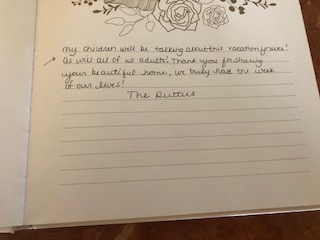 my children will be talking about this vacation forever!
As will all of us adults! Thank you for sharing
your beautiful home, we truly had the week
of our lives!
The